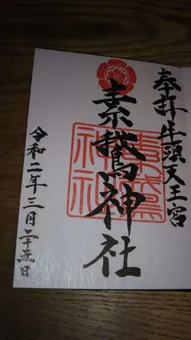 奉拝 牛頭天王宮
素鵞神社
令和二年三月二十五日